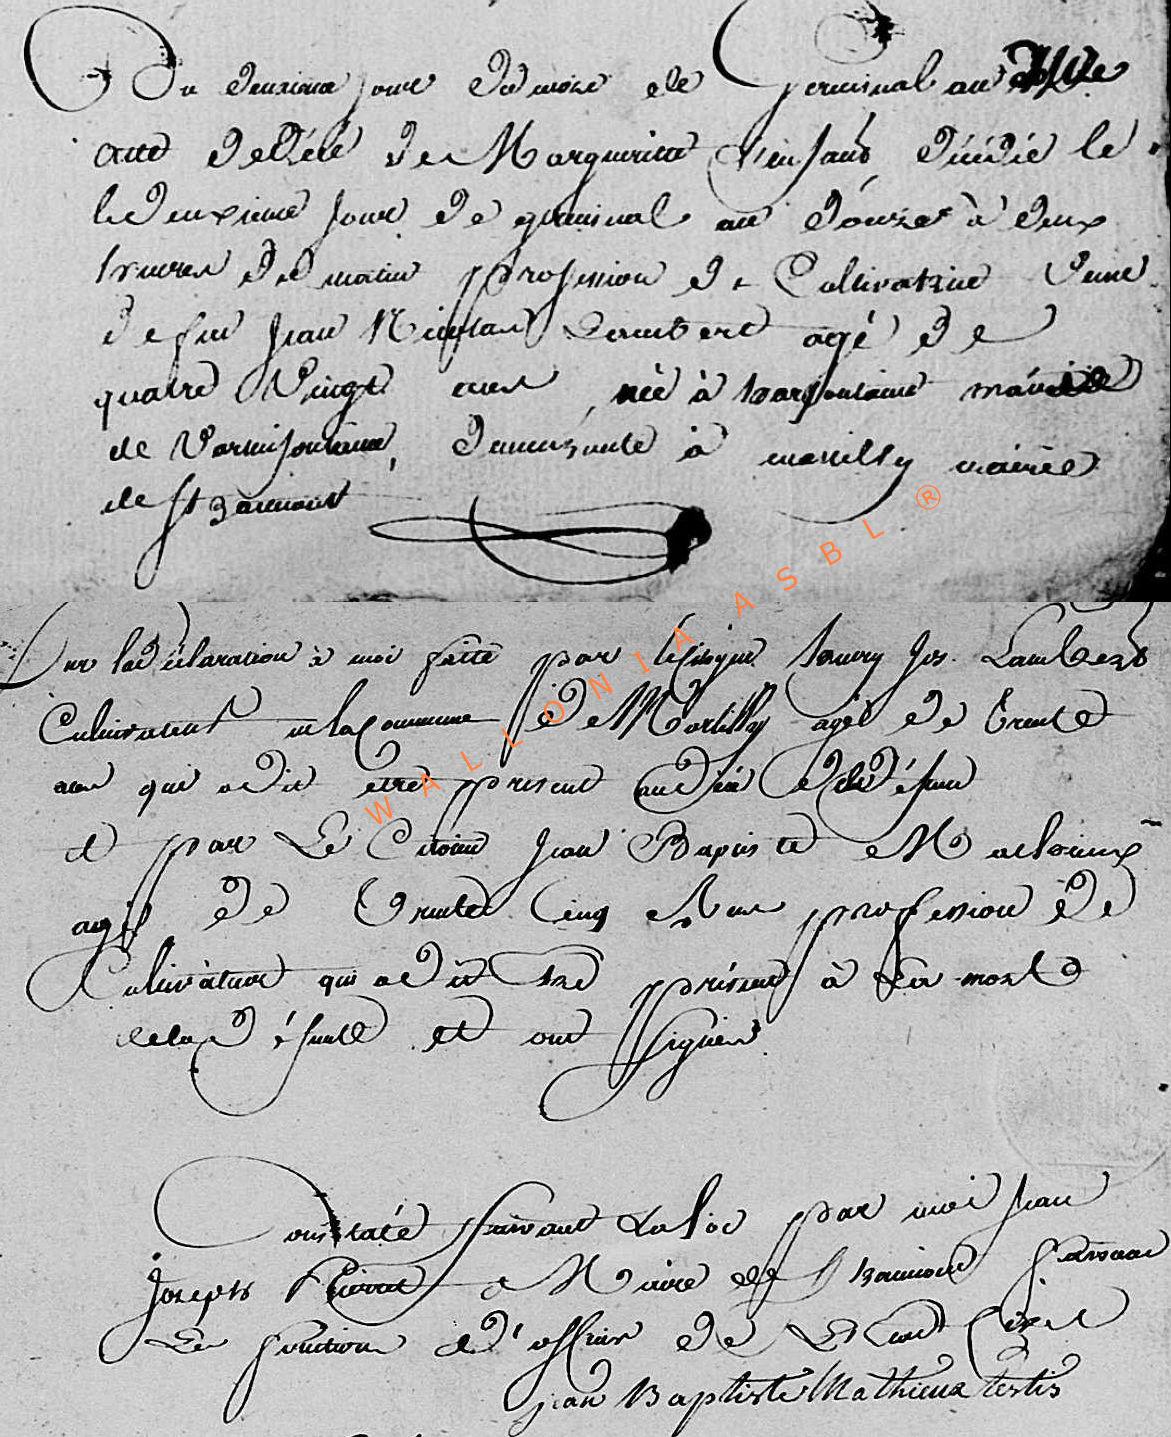 Du deuxieme jour du mois de Germinal an XIIe
acte de décé de Margueritte décédée le
le deuxieme jour de germinal an douze à deux
heures du matin profession de Cultivatrice veuve
de feu Jean Nicolas Lambert agé de
quatre Vingt ans, née à harfontaine mairie
de demeurante à mairie
de St
Sur la déclaration à moi faitte par le citoyen henry Jos. Lambert
Cultivateur de la Commune de agé de trente
ans qui a dit etre present au décé de la défunte
et par Le Citoien Jean Baptiste Mathieux
agé de trente Cinq Ans profession de
Cultivateur qui a dit etre présent à La mort
de la défunte et ont signer
Constaté suivant La loi par moi Jean
Joseph Pierret Maire de St faisant
Les fonction d'officier de L'Etat Civil
jean Baptiste Mathieux testis
WALLONIA ASBL ®